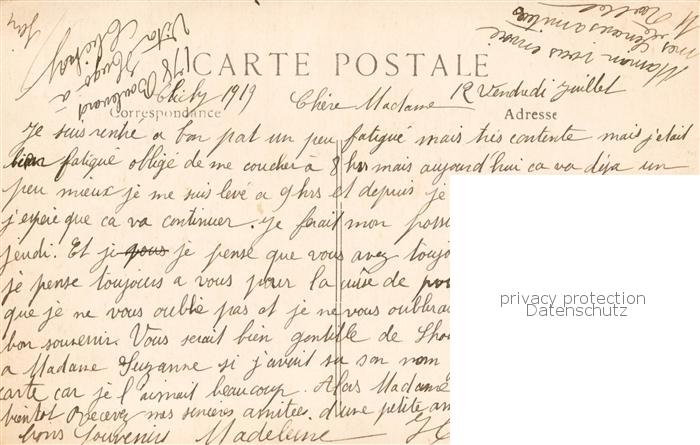 CARTE POSTALE
Correspondance
Adresse
178 Boulevard
Victor Hugo a
Clichy
Maman vous envoie
mes sincères amitiés
Clichy 1919 Chère Madame 12 Vendredi Juillet
Je suis rentré a bon pat un peu fatigué mais très contente mais j'etait
bien fatigué obligé de me coucher à 8 hrs mais aujourd'hui ca va déja un
peu mieux je me suis levé a 9 hrs et depuis je
j'espère que ca va continuer. Je ferait mon poss
jeudi. Et je vous je pense que vous avez toujo
je pense toujours a vous pour la cuite de
que je ne vous oublie pas et je ne vous oublerai
bon souvenir. Vous serait bien gentille de
a Madame Suzanne si j'avait su son nom
carte car je l'aimait beaucoup. Alors Madame
bientot Recevez mes sincères amitée. d'une petite am
bons Souvenirs Madeleine
privacy protection
Datenschutz